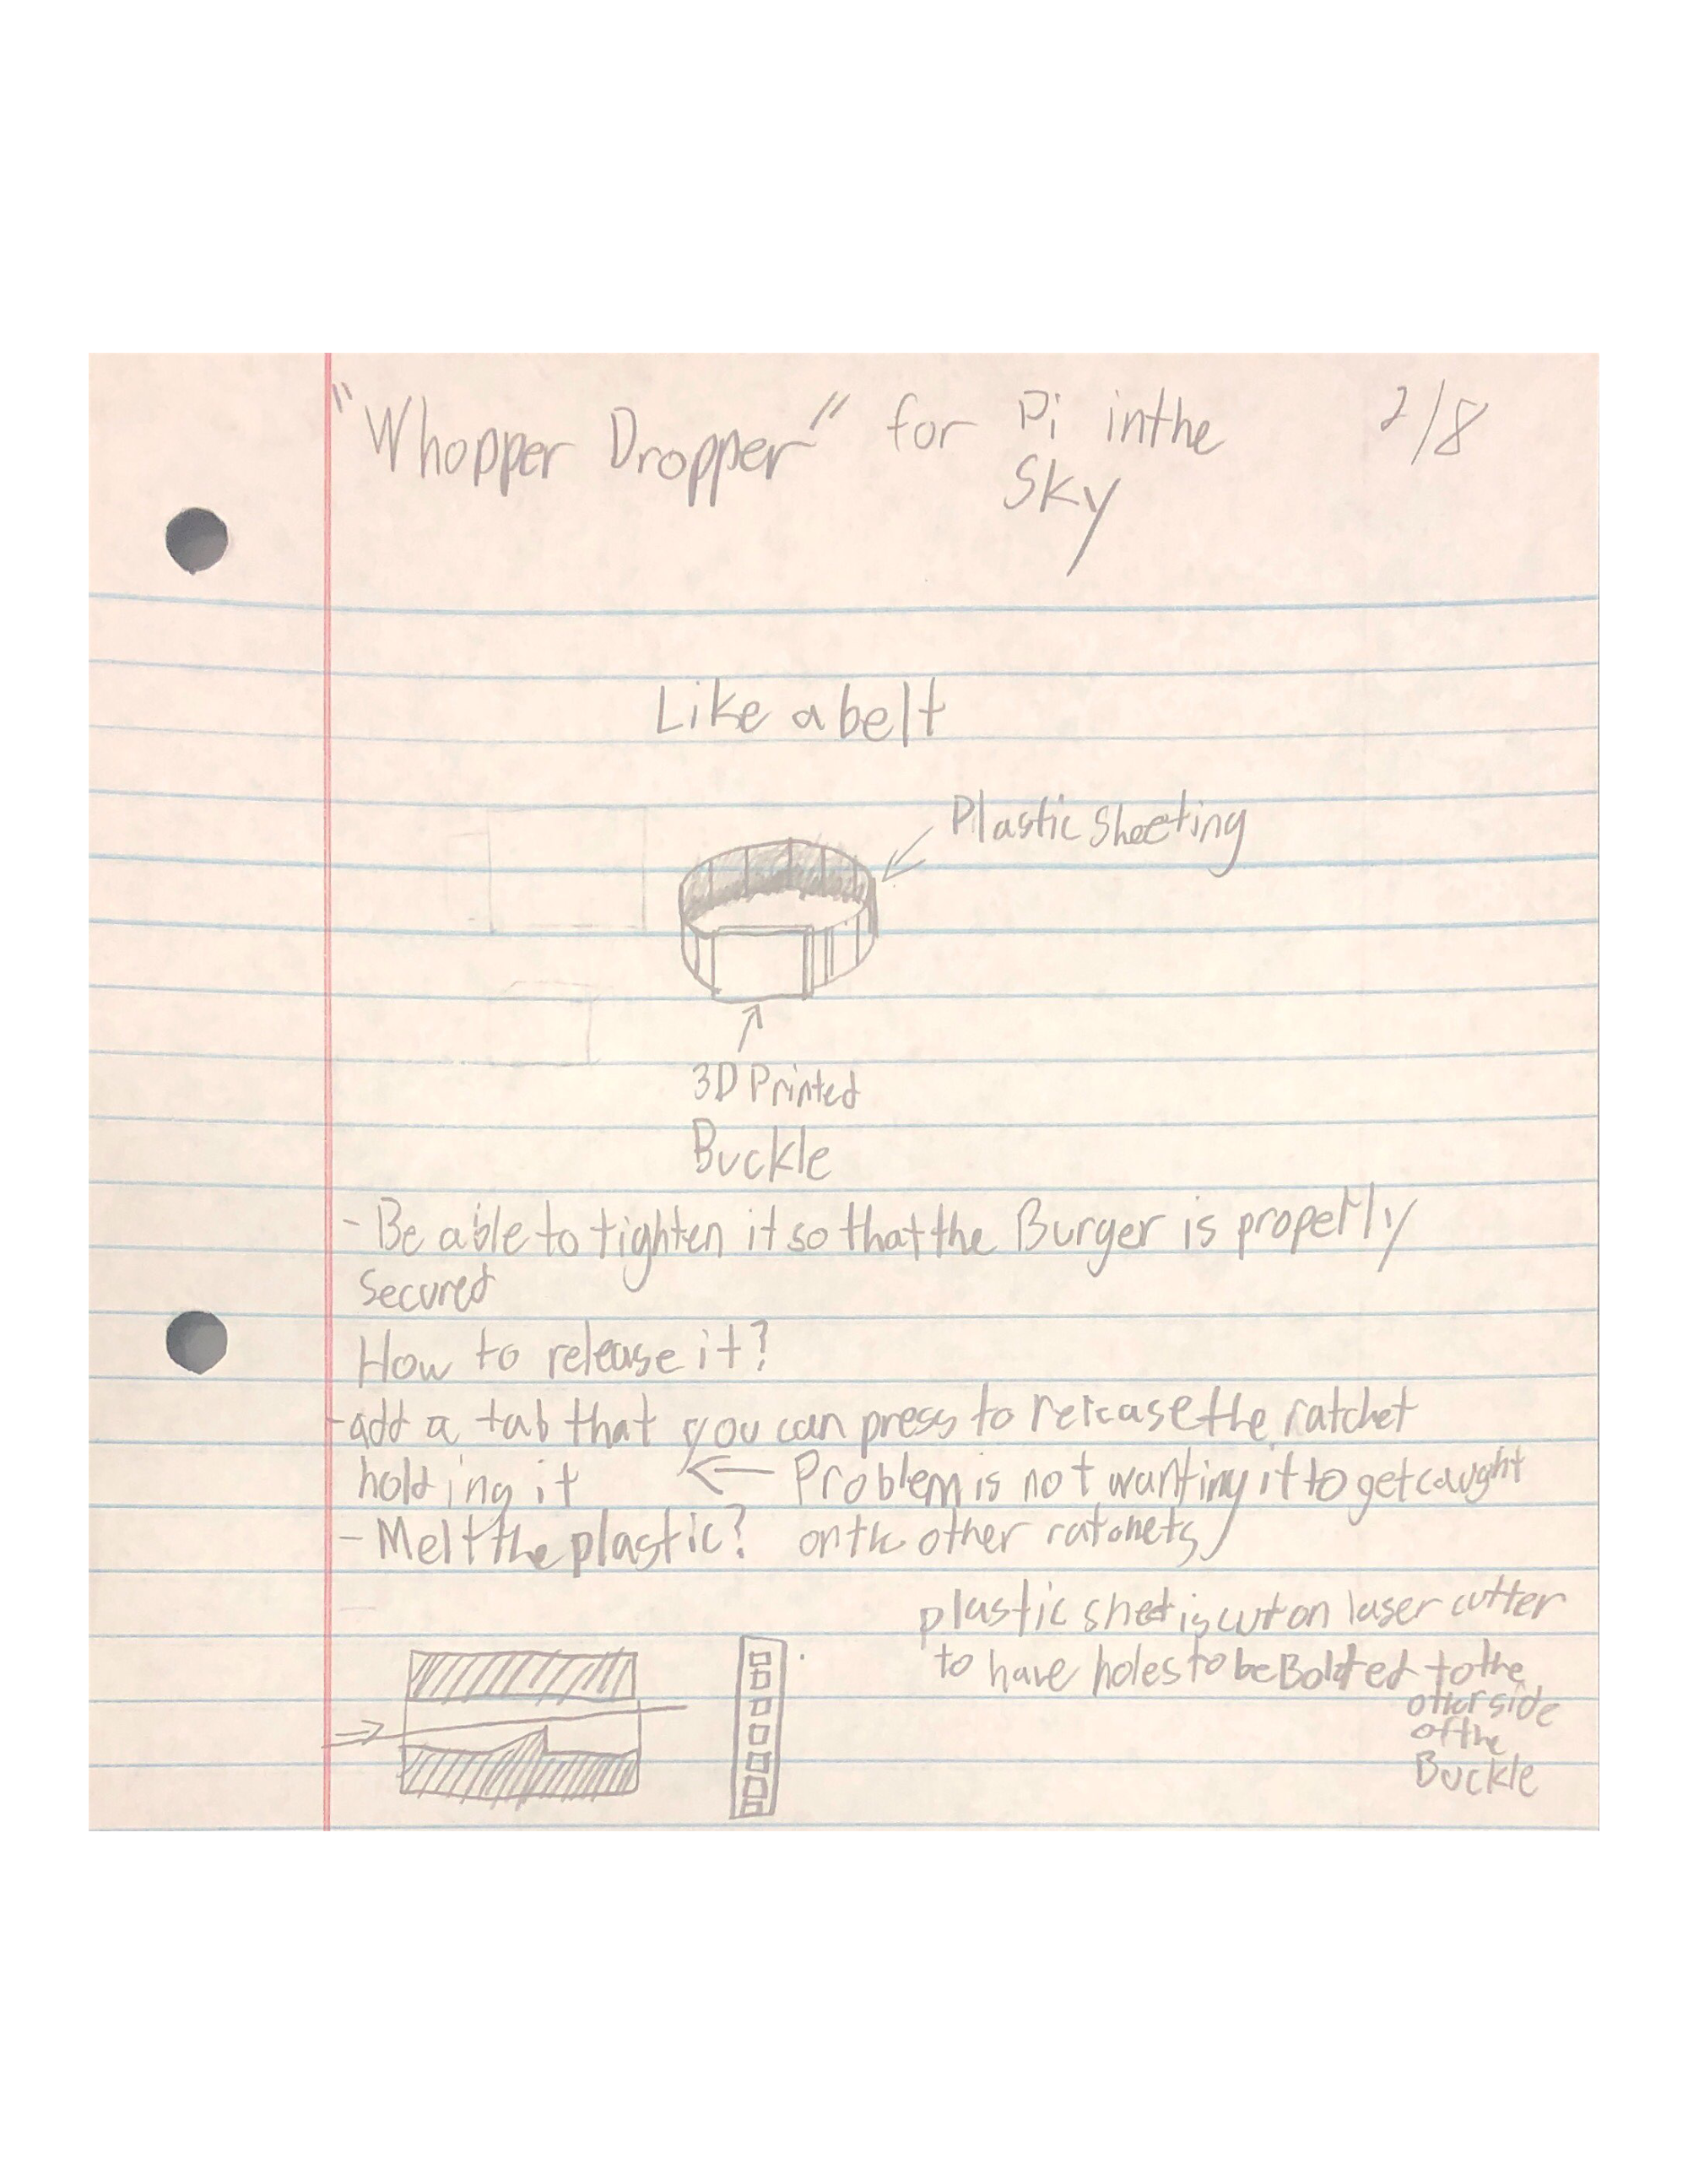 "Whopper Dropper" for Pi inthe
Sky
2/8
Like a belt
Plastic Sheeting
3D Printed
Buckle
- Be able to tighten it so that the Burger is properly
secured
How to release it?
- add a tab that you can press to release the ratchet
holding it ← Problem is not wanting it to get caught
on the other ratchets
- Melt the plastic?
plastic sheet is cut on laser cutter
to have holes to be Bolted to the
other side
of the
Buckle